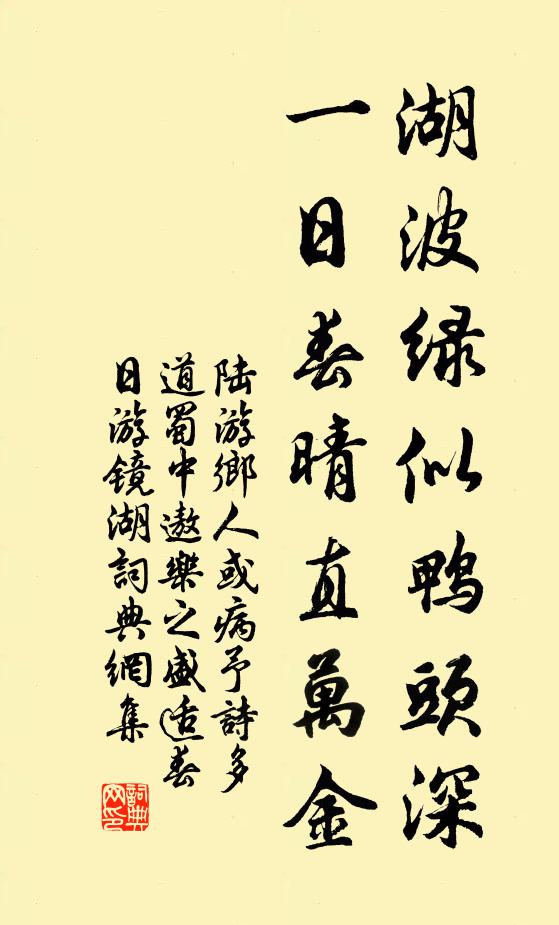 湖波緑似鴨頭深
一日春晴直萬金
陆游鄉人或病予詩多
道蜀中遨樂之盛适春
日游镜湖詞典網集
詞典网印